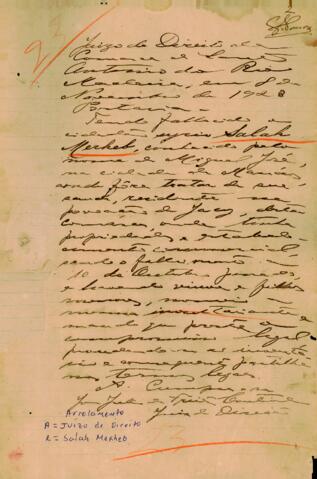 Juizo de Direito da
Comarca de Santo
Antonio do Rio
Madeira, em 8 de
Novembro de 1928
Portaria
Tendo fallecido o
cidadão syrio Salah
Merheb, conhecido pelo
nome de Miguel José,
na cidade de Manáos
onde fôra tratar de sua
saude, residente na
povoação de Jacy, desta
comarca onde tinha
propriedades e estabele-
cimento commercial,
sendo o fallecimento a
10 de Outubro passado,
e havendo viuva e filhos
menores, nomeio a
mesma inventariante e
mando que preste o
compromisso legal
procedendo-se ao inventa-
rio e consequente partilha
nos termos legaes.
A. Cumpra-se
Juiz de Direito
Arrolamento
A = Juizo de Direito
R = Salah Merheb